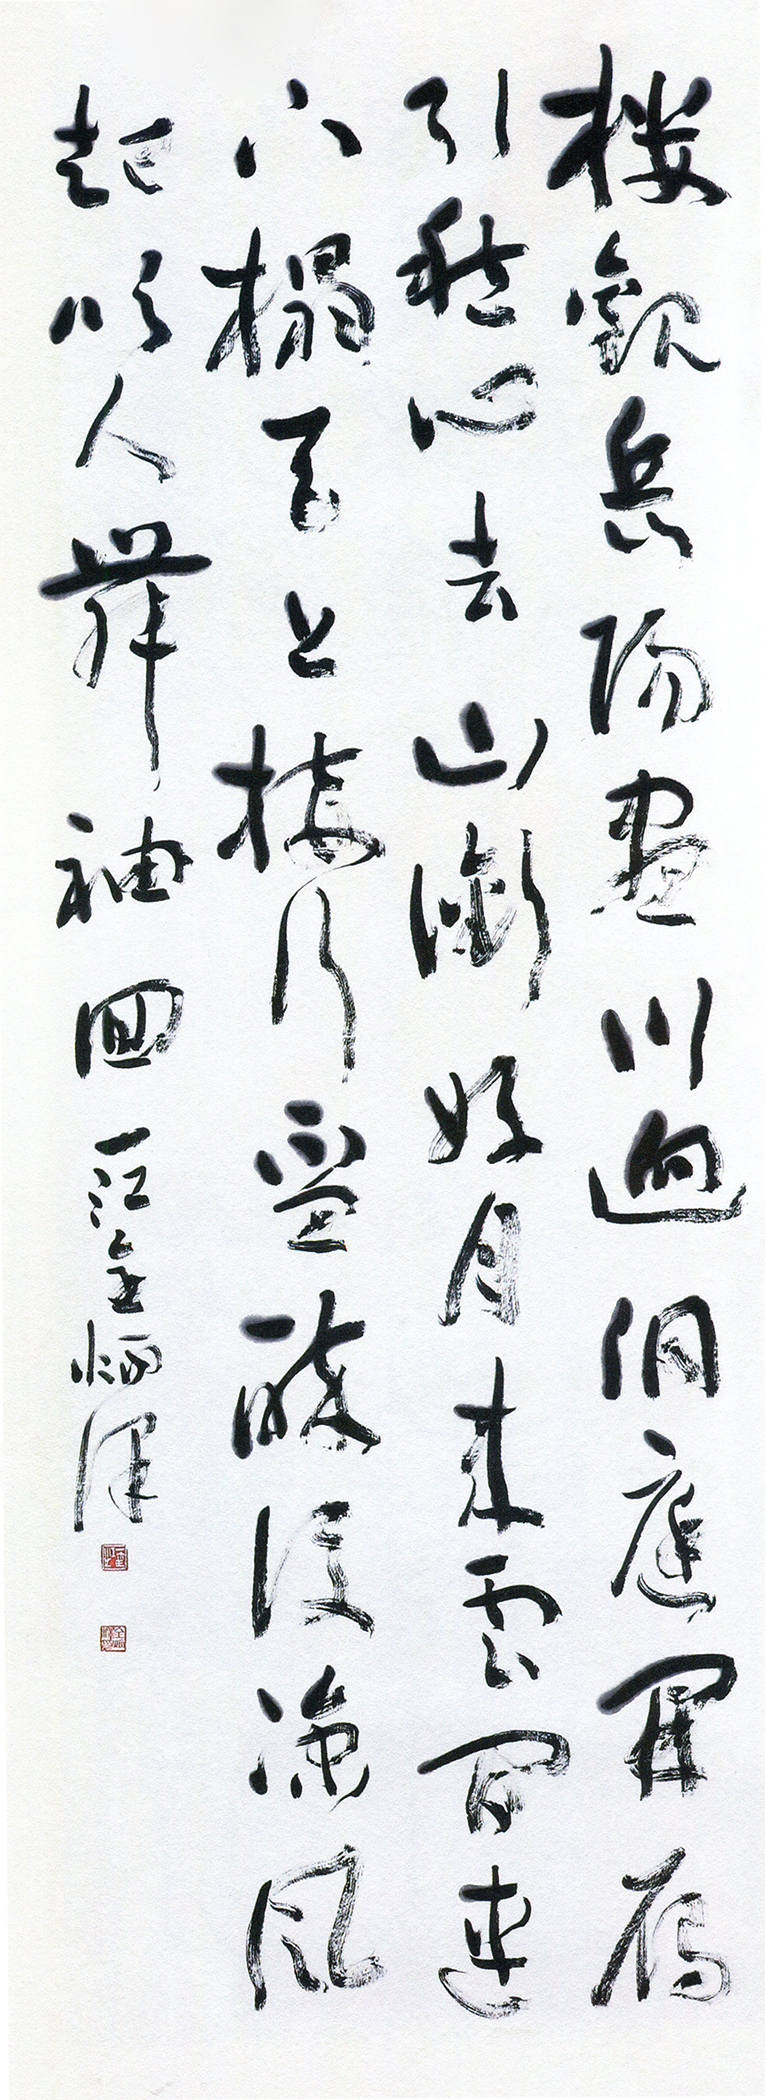 樓觀岳陽盡川迥洞庭開雁
引愁心去山銜好月來雲間連
下榻天上接行盃醉後涼風
起吹人舞袖回 一江金炳